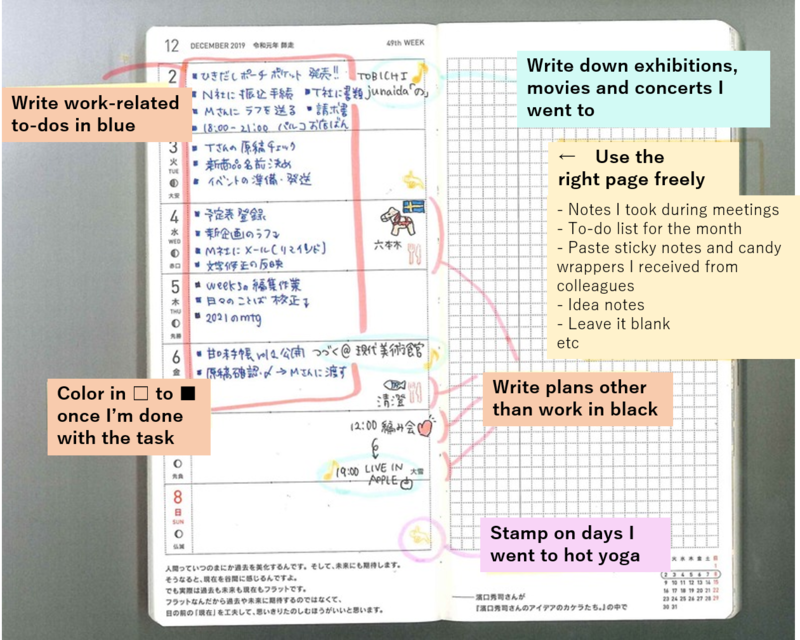 12 DECEMBER 2019 令和元年 師走 49th WEEK
Write work-related
to-dos in blue
2
■ ひきだしポーチ ポケット 発売!!
TOBICHI
■ N社に振込手続 ■ T社に書類
junaida「の」
■ Mさんにラフを送る ■ 請求書
■ 18:00-21:00 パルコお店ばん
3
火
TUE
大安
■ Tさんの原稿チェック
■ 新商品名前決め
■ イベントの準備・発送
4
水
WED
赤口
■ 予定表登録
■ 新企画のラフ
■ M社にメール(リマインド)
■ 文字修正の反映
六本木
5
木
THU
先勝
■ weeks の編集作業
■ 日々のことば 校正
■ 2021のmtg
6
金
■ 甘口手帳 vol.2 公開
つづく@現代美術館
■ 原稿確認・〆→Mさんに渡す
清澄
12:00 編み会
先負
19:00 LIVE IN
APPLE
大雪
8
日
SUN
仏滅
人間っていつのまにか過去を美化するんです。そして、未来にも期待します。
そうなると、現在を谷間に感じるんですよ。
でも実際は過去も未来も現在もフラットです。
フラットなんだから過去や未来に期待するのではなくて、
目の前の「現在」を工夫して、思いきりたのしむほうがいいと思います。
Color in □ to ■
once I'm done
with the task
Write down exhibitions,
movies and concerts I
went to
← Use the
right page freely
- Notes I took during meetings
- To-do list for the month
- Paste sticky notes and candy
wrappers I received from
colleagues
- Idea notes
- Leave it blank
etc
Write plans other
than work in black
Stamp on days I
went to hot yoga
火 水 木 金 土 日
1
2 3 4 5 6 7 8
9 10 11 12 13 14 15
16 17 18 19 20 21 22
23 24 25 26 27 28 29
30 31
——濱口秀司さんが
『濱口秀司さんのアイデアのカケラたち。』の中で